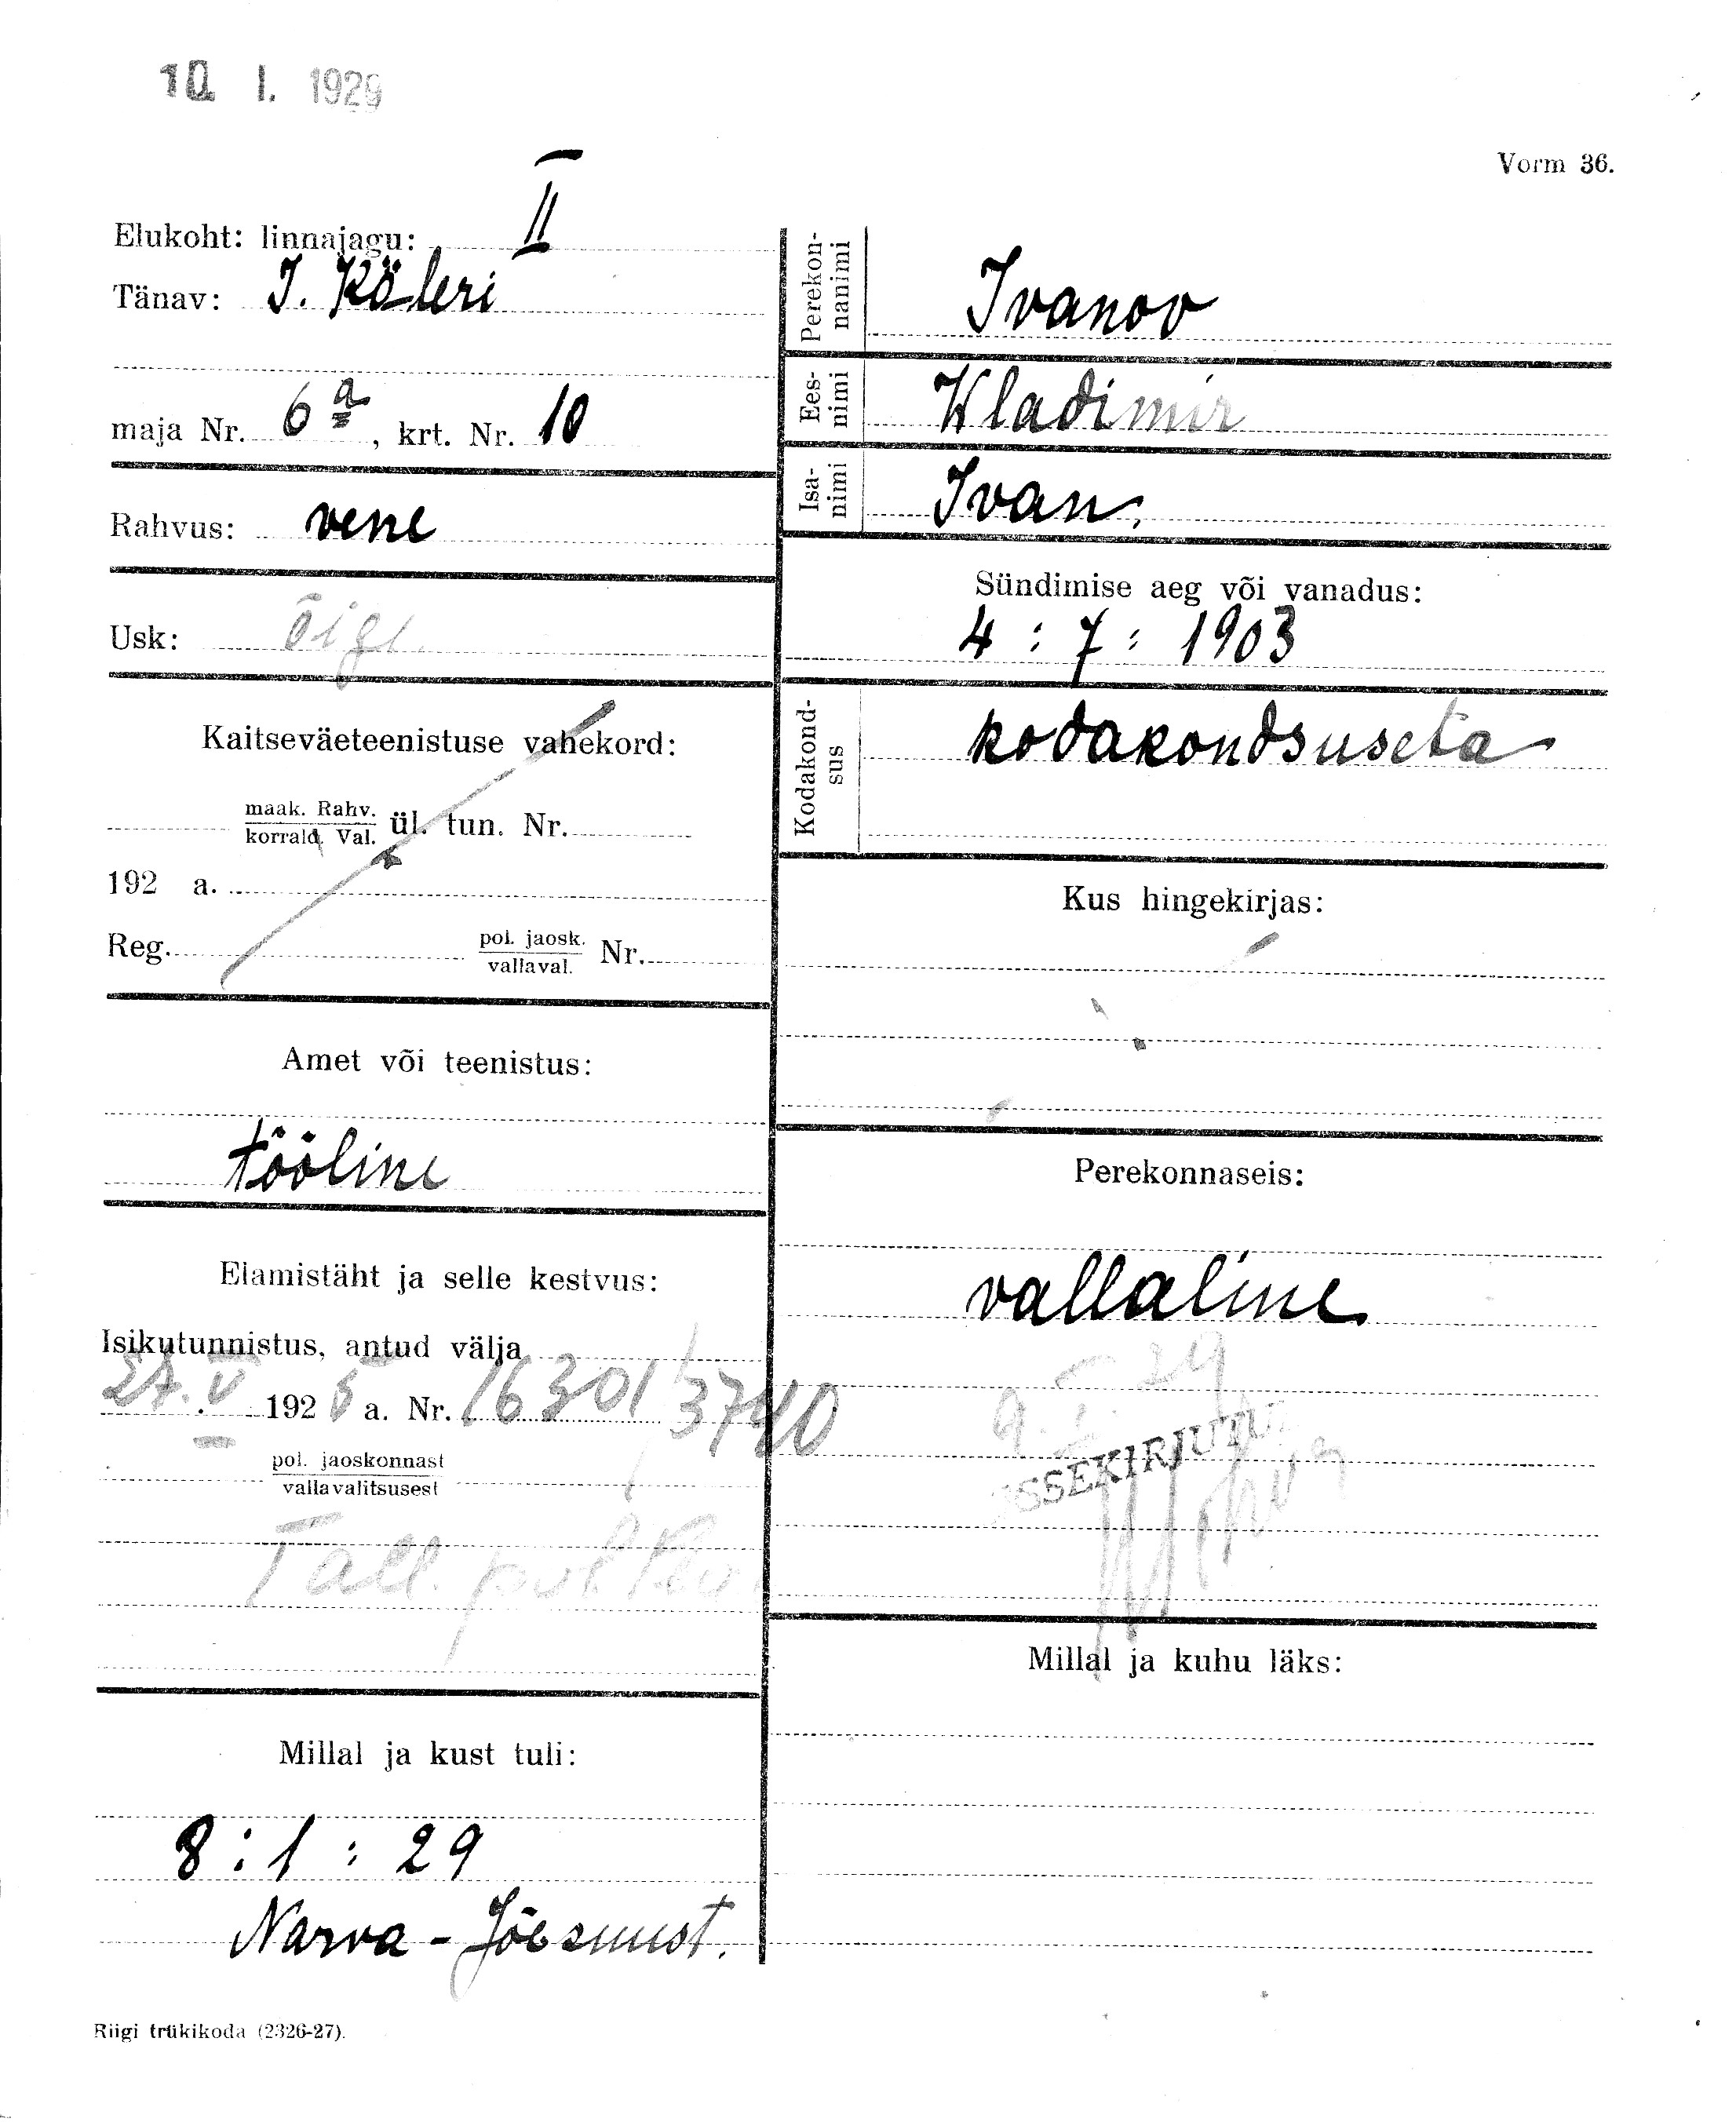 10. I. 1929
Vorm 36.
Elukoht: linnajagu: II
Tänav: J. Köleri
maja Nr. 6a, krt. Nr. 10
Rahvus: vene
Usk: õigl.
Kaitseväeteenistuse vahekord:
maak. Rahv.
korrald. Val. ül. tun. Nr.
192 a.
Reg. pol. jaosk.
vallaval. Nr.
Amet või teenistus:
tööline
Elamistäht ja selle kestvus:
Isikutunnistus, antud välja
27. V 1925 a. Nr. 16301/3740
pol. jaoskonnast
vallavalitsusest
Tall. pol.
Millal ja kust tuli:
8 : 1 : 29
Narva-Jõesuust.
Perekon-
nanimi
Ivanov
Ees-
nimi
Wladimir
Isa-
nimi
Ivan.
Sündimise aeg või vanadus:
4 : 7 : 1903
Kodakond-
sus
kodakondsuseta
Kus hingekirjas:
Perekonnaseis:
vallaline
9. I 29
SSEKIRJUTU
Millal ja kuhu läks:
Riigi trükikoda (2326-27).